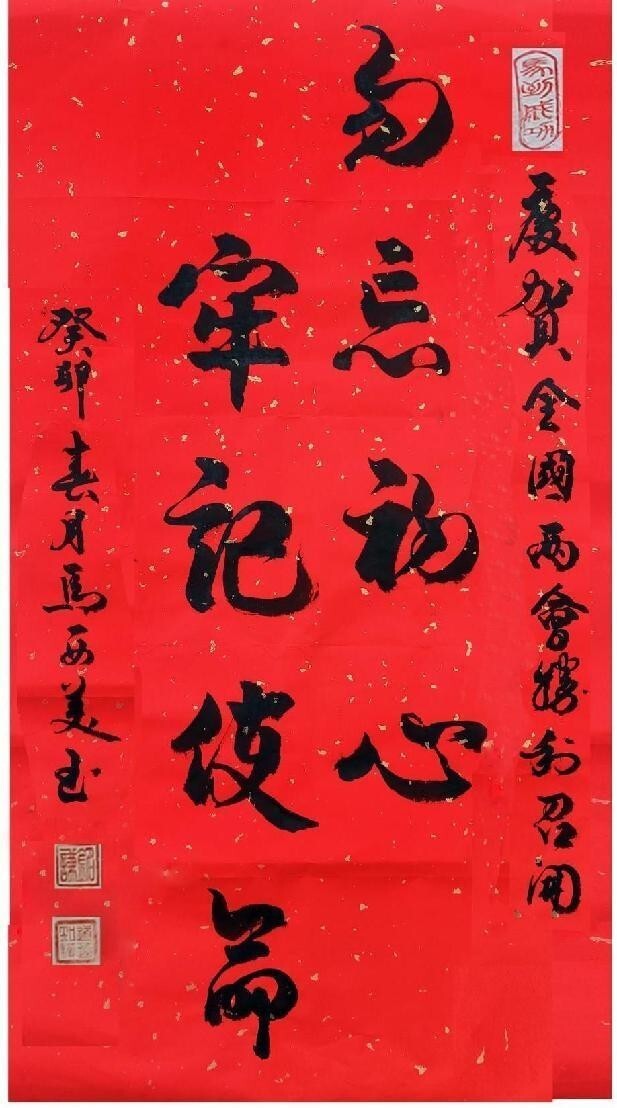 馬到成功
慶賀全國兩會勝利召開
勿忘初心
牢記使命
癸卯春月馬西美玉